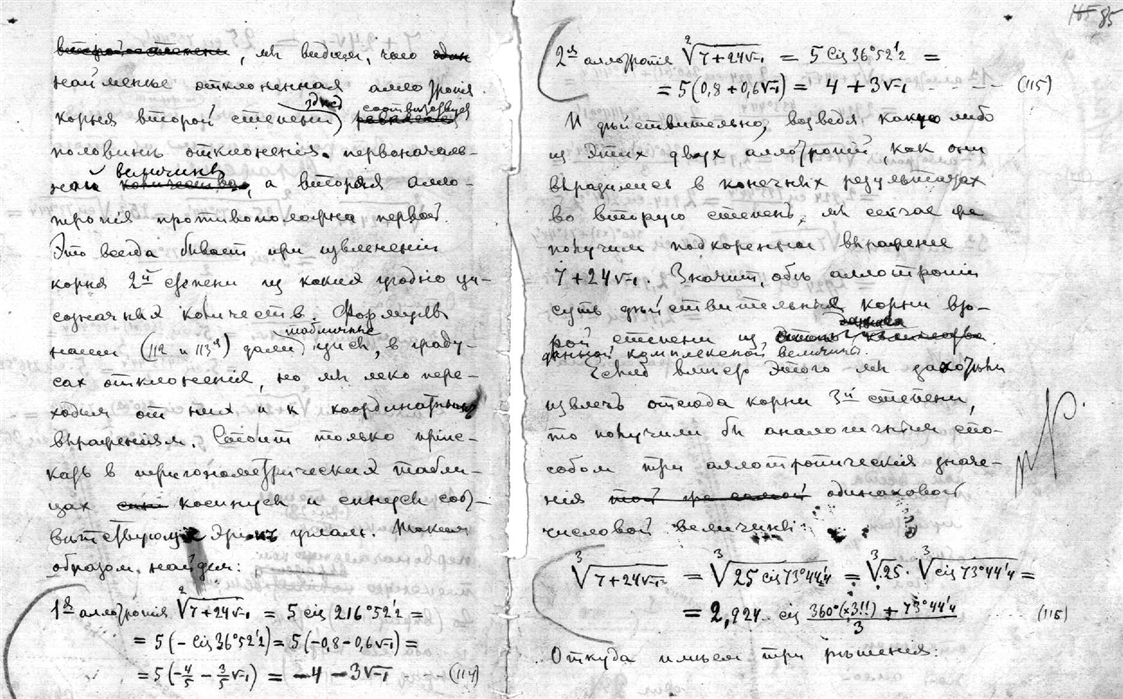 второй степени, мы видим, что один
наименѣе отклоненная аллотропія
корня второй степени здѣсь соотвѣтствуетъ
половинѣ отклоненія первоначаль-
ной величины, а вторая алло-
тропія противоположна первой.
Это всегда бываетъ при извлеченіи
корня 2й степени из каких угодно ци-
созначныхъ количествъ. Формулы
наши (112 и 113я) дали табличные цисы, в граду-
сах отклоненія, но мы легко пере-
ходим от них и к координатным
выраженіям. Стоит только пріис-
кать в тригонометрических табли-
цах косинусы и синусы соот-
вѣтствующіе углам. Таким
образом найдем:
1я аллотропія ²√7+24√-1 = 5 cis 216°52'2 =
= 5(- cis 36°52'2) = 5(-0,8 - 0,6√-1) =
= 5(-4/5 - 3/5√-1) = -4 - 3√-1 (114)
85
2я аллотропія ²√7+24√-1 = 5 cis 36°52'2 =
= 5(0,8 + 0,6√-1) = 4 + 3√-1 - - - - (115)
И дѣйствительно, возведя какую либо
из этих двух аллотропій как они
выразились в конечных результатах
во вторую степень, мы сейчас же
получим подкоренное выраженіе
7+24√-1. Значит, обѣ аллотропіи
суть дѣйствительные корни вто-
рой степени из
данной комплексной величины.
Если б вмѣсто этого мы захотѣли
извлечь отсюда корни 3й степени,
то получили бы аналогичным спо-
собом три аллотропическія значе-
нія той же самой одинаковой
числовой величины:
³√7+24√-1 = ³√25 cis 73°44'4 = ³√25 · ³√cis 73°44'4 =
= 2,924 cis (360°(×3!!) + 73°44'4)/3 (116)
Откуда имѣем три рѣшенія: